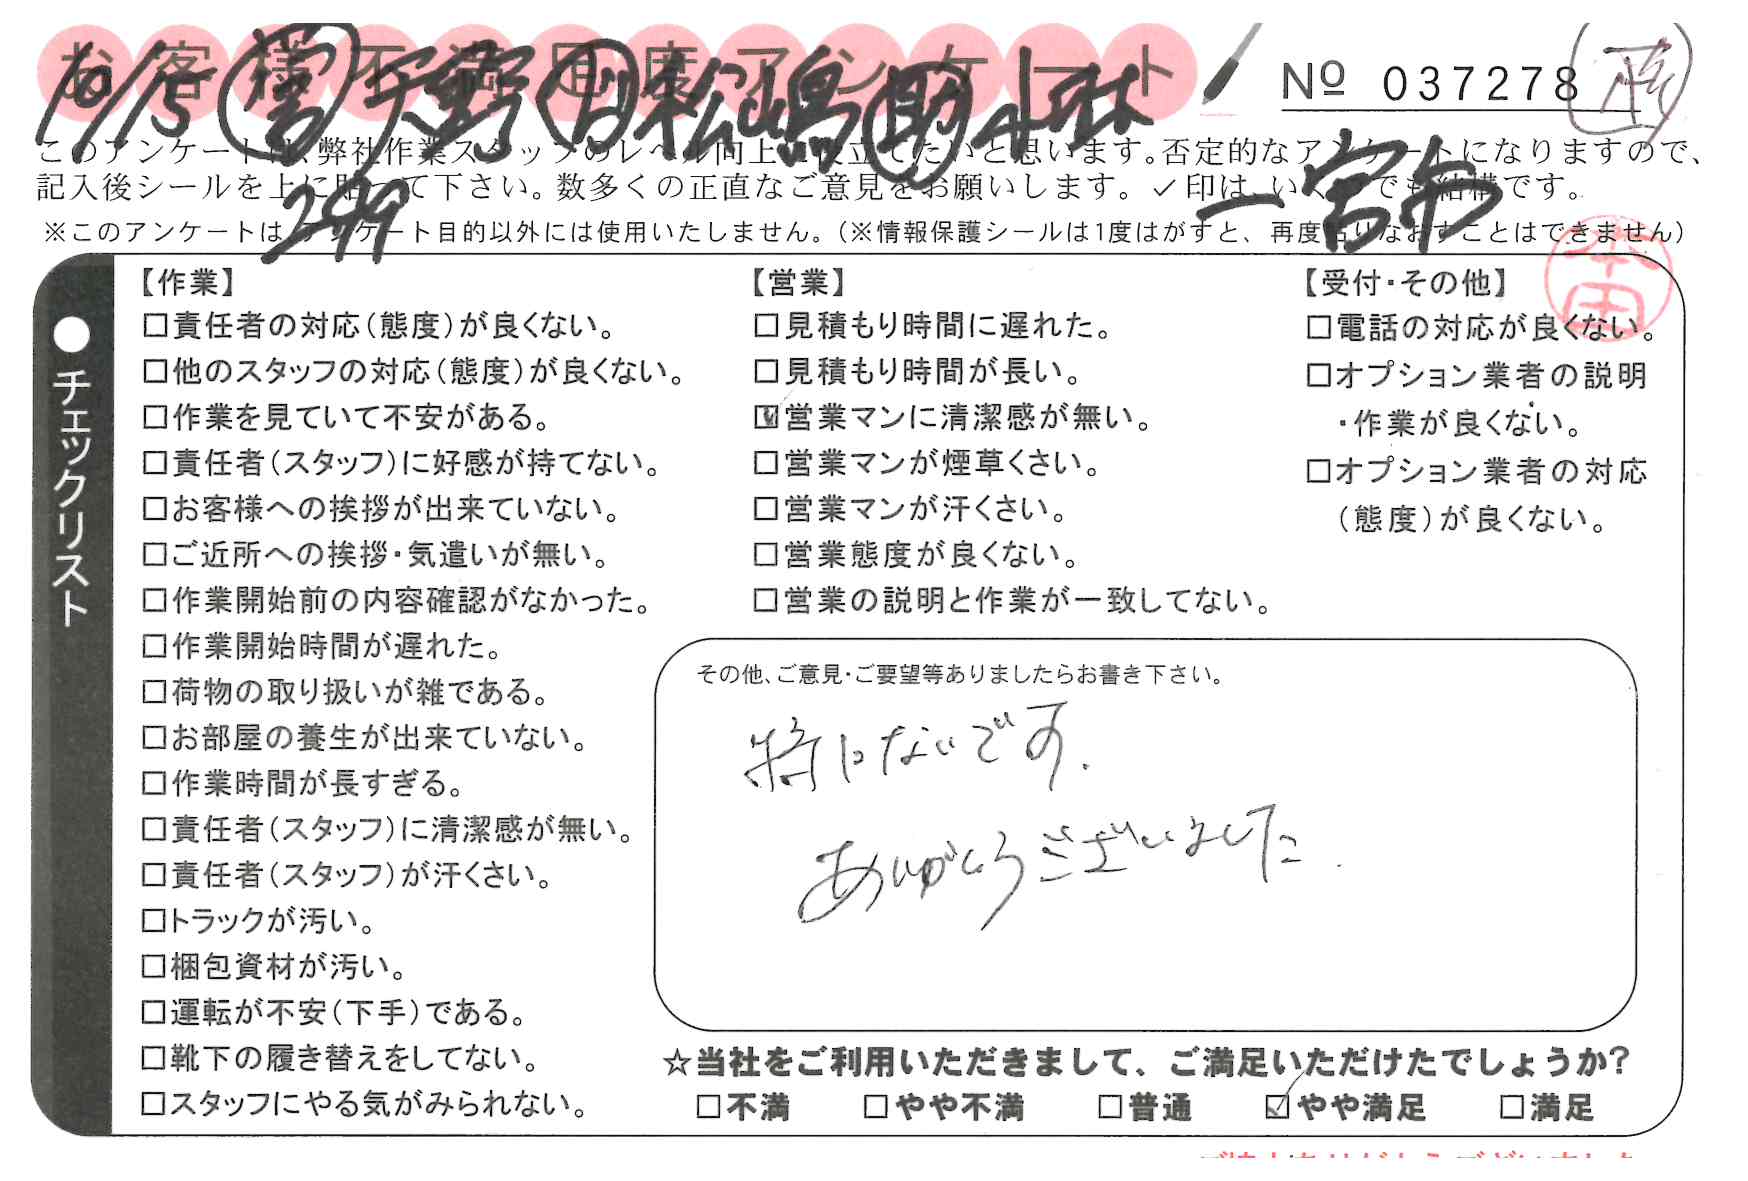 お客様不満足度アンケート
No 037278
10/15 営 天野 松嶋 助 小林
このアンケートは、弊社作業スタッフのレベル向上に役立てたいと思います。否定的なアンケートになりますので、
記入後シールを上に貼って下さい。数多くの正直なご意見をお願いします。✓印は、いくつでも結構です。
299
一宮市
※このアンケートはアンケート目的以外には使用いたしません。（※情報保護シールは1度はがすと、再度貼りなおすことはできません）
本田
●チェックリスト
【作業】
□責任者の対応（態度）が良くない。
□他のスタッフの対応（態度）が良くない。
□作業を見ていて不安がある。
□責任者（スタッフ）に好感が持てない。
□お客様への挨拶が出来ていない。
□ご近所への挨拶・気遣いが無い。
□作業開始前の内容確認がなかった。
□作業開始時間が遅れた。
□荷物の取り扱いが雑である。
□お部屋の養生が出来ていない。
□作業時間が長すぎる。
□責任者（スタッフ）に清潔感が無い。
□責任者（スタッフ）が汗くさい。
□トラックが汚い。
□梱包資材が汚い。
□運転が不安（下手）である。
□靴下の履き替えをしてない。
□スタッフにやる気がみられない。
【営業】
□見積もり時間に遅れた。
□見積もり時間が長い。
☑営業マンに清潔感が無い。
□営業マンが煙草くさい。
□営業マンが汗くさい。
□営業態度が良くない。
□営業の説明と作業が一致してない。
【受付・その他】
□電話の対応が良くない。
□オプション業者の説明
・作業が良くない。
□オプション業者の対応
（態度）が良くない。
その他、ご意見・ご要望等ありましたらお書き下さい。
特にないです.
ありがとうございました.
☆当社をご利用いただきまして、ご満足いただけたでしょうか?
□不満 □やや不満 □普通 ☑やや満足 □満足